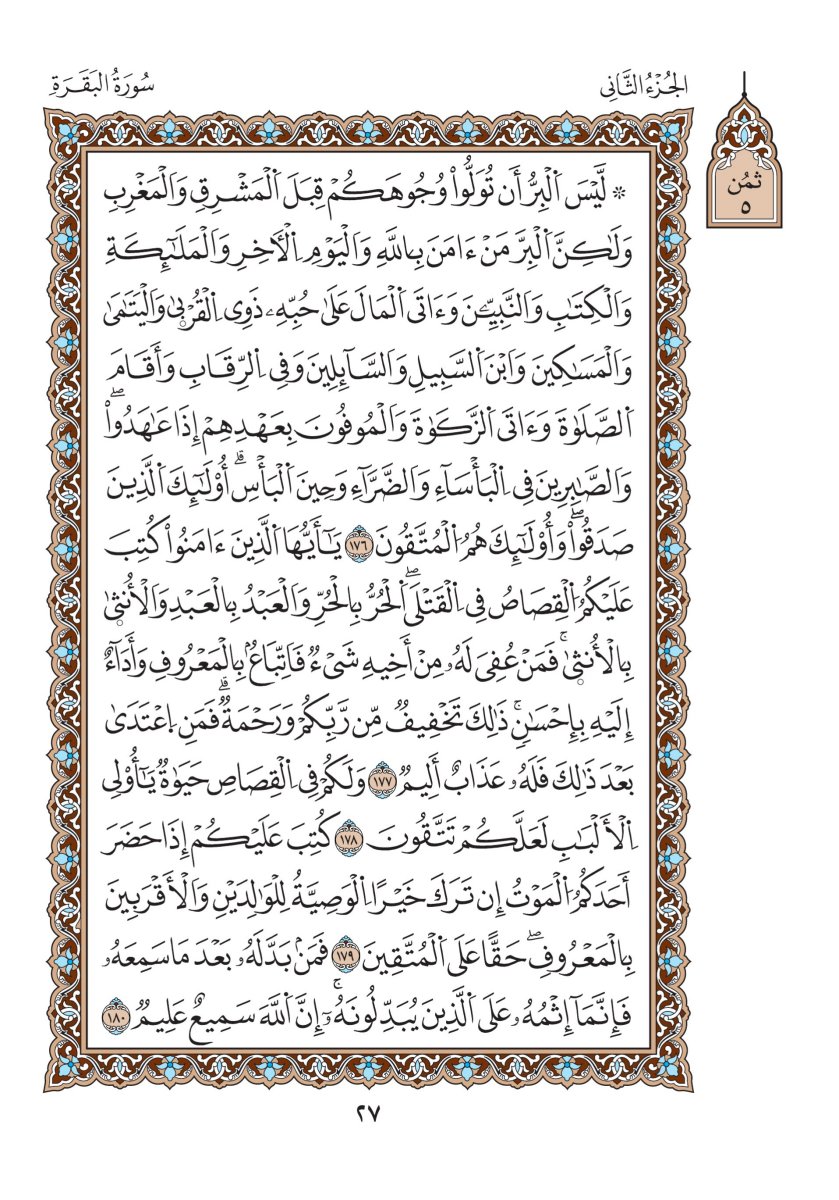 الجُزْءُ الثَّانِي
سُورَةُ البَقَرَةِ
ثمُن
٥
۞ لَّيْسَ اَ۬لْبِرُّ أَن تُوَلُّواْ وُجُوهَكُمْ قِبَلَ اَ۬لْمَشْرِقِ وَالْمَغْرِبِ
وَلَٰكِنَّ اَ۬لْبِرَّ مَنْ ءَامَنَ بِاللَّهِ وَالْيَوْمِ اِ۬لْأٓخِرِ وَالْمَلَٰٓئِكَةِ
وَالْكِتَٰبِ وَالنَّبِيّـِۧنَ وَءَاتَى اَ۬لْمَالَ عَلَىٰ حُبِّهِۦ ذَوِي اِ۬لْقُرْب۪ىٰ وَالْيَتَٰمَىٰ
وَالْمَسَٰكِينَ وَابْنَ اَ۬لسَّبِيلِ وَالسَّآئِلِينَ وَفِي اِ۬لرِّقَابِ وَأَقَامَ
اَ۬لصَّلَوٰةَ وَءَاتَى اَ۬لزَّكَوٰةَ وَالْمُوفُونَ بِعَهْدِهِمْ إِذَا عَٰهَدُواْۖ
وَالصَّٰبِرِينَ فِي اِ۬لْبَأْسَآءِ وَالضَّرَّآءِ وَحِينَ اَ۬لْبَأْسِۗ أُوْلَٰٓئِكَ اَ۬لَّذِينَ
صَدَقُواْۖ وَأُوْلَٰٓئِكَ هُمُ اُ۬لْمُتَّقُونَ ١٧٦ يَٰٓأَيُّهَا اَ۬لَّذِينَ ءَامَنُواْ كُتِبَ
عَلَيْكُمُ اُ۬لْقِصَاصُ فِي اِ۬لْقَتْلَىۖ اَ۬لْحُرُّ بِالْحُرِّ وَالْعَبْدُ بِالْعَبْدِ وَالْأُنث۪ىٰ
بِالْأُنث۪ىٰۚ فَمَنْ عُفِيَ لَهُۥ مِنْ أَخِيهِ شَيْءٌ فَاتِّبَاعُۢ بِالْمَعْرُوفِ وَأَدَآءٌ
إِلَيْهِ بِإِحْسَٰنٖۚ ذَٰلِكَ تَخْفِيفٌ مِّن رَّبِّكُمْ وَرَحْمَةٌۗ فَمَنِ اِ۪عْتَدَىٰ
بَعْدَ ذَٰلِكَ فَلَهُۥ عَذَابٌ أَلِيمٌ ١٧٧ وَلَكُمْ فِي اِ۬لْقِصَاصِ حَيَوٰةٌ يَٰٓأُوْلِي
اِ۬لْأَلْبَٰبِ لَعَلَّكُمْ تَتَّقُونَ ١٧٨ كُتِبَ عَلَيْكُمْ إِذَا حَضَرَ
أَحَدَكُمُ اُ۬لْمَوْتُ إِن تَرَكَ خَيْرًا اِ۬لْوَصِيَّةُ لِلْوَٰلِدَيْنِ وَالْأَقْرَبِينَ
بِالْمَعْرُوفِۖ حَقًّا عَلَى اَ۬لْمُتَّقِينَ ١٧٩ فَمَنۢ بَدَّلَهُۥ بَعْدَ مَا سَمِعَهُۥ
فَإِنَّمَآ إِثْمُهُۥ عَلَى اَ۬لَّذِينَ يُبَدِّلُونَهُۥٓۚ إِنَّ اَ۬للَّهَ سَمِيعٌ عَلِيمٌ ١٨٠
٢٧